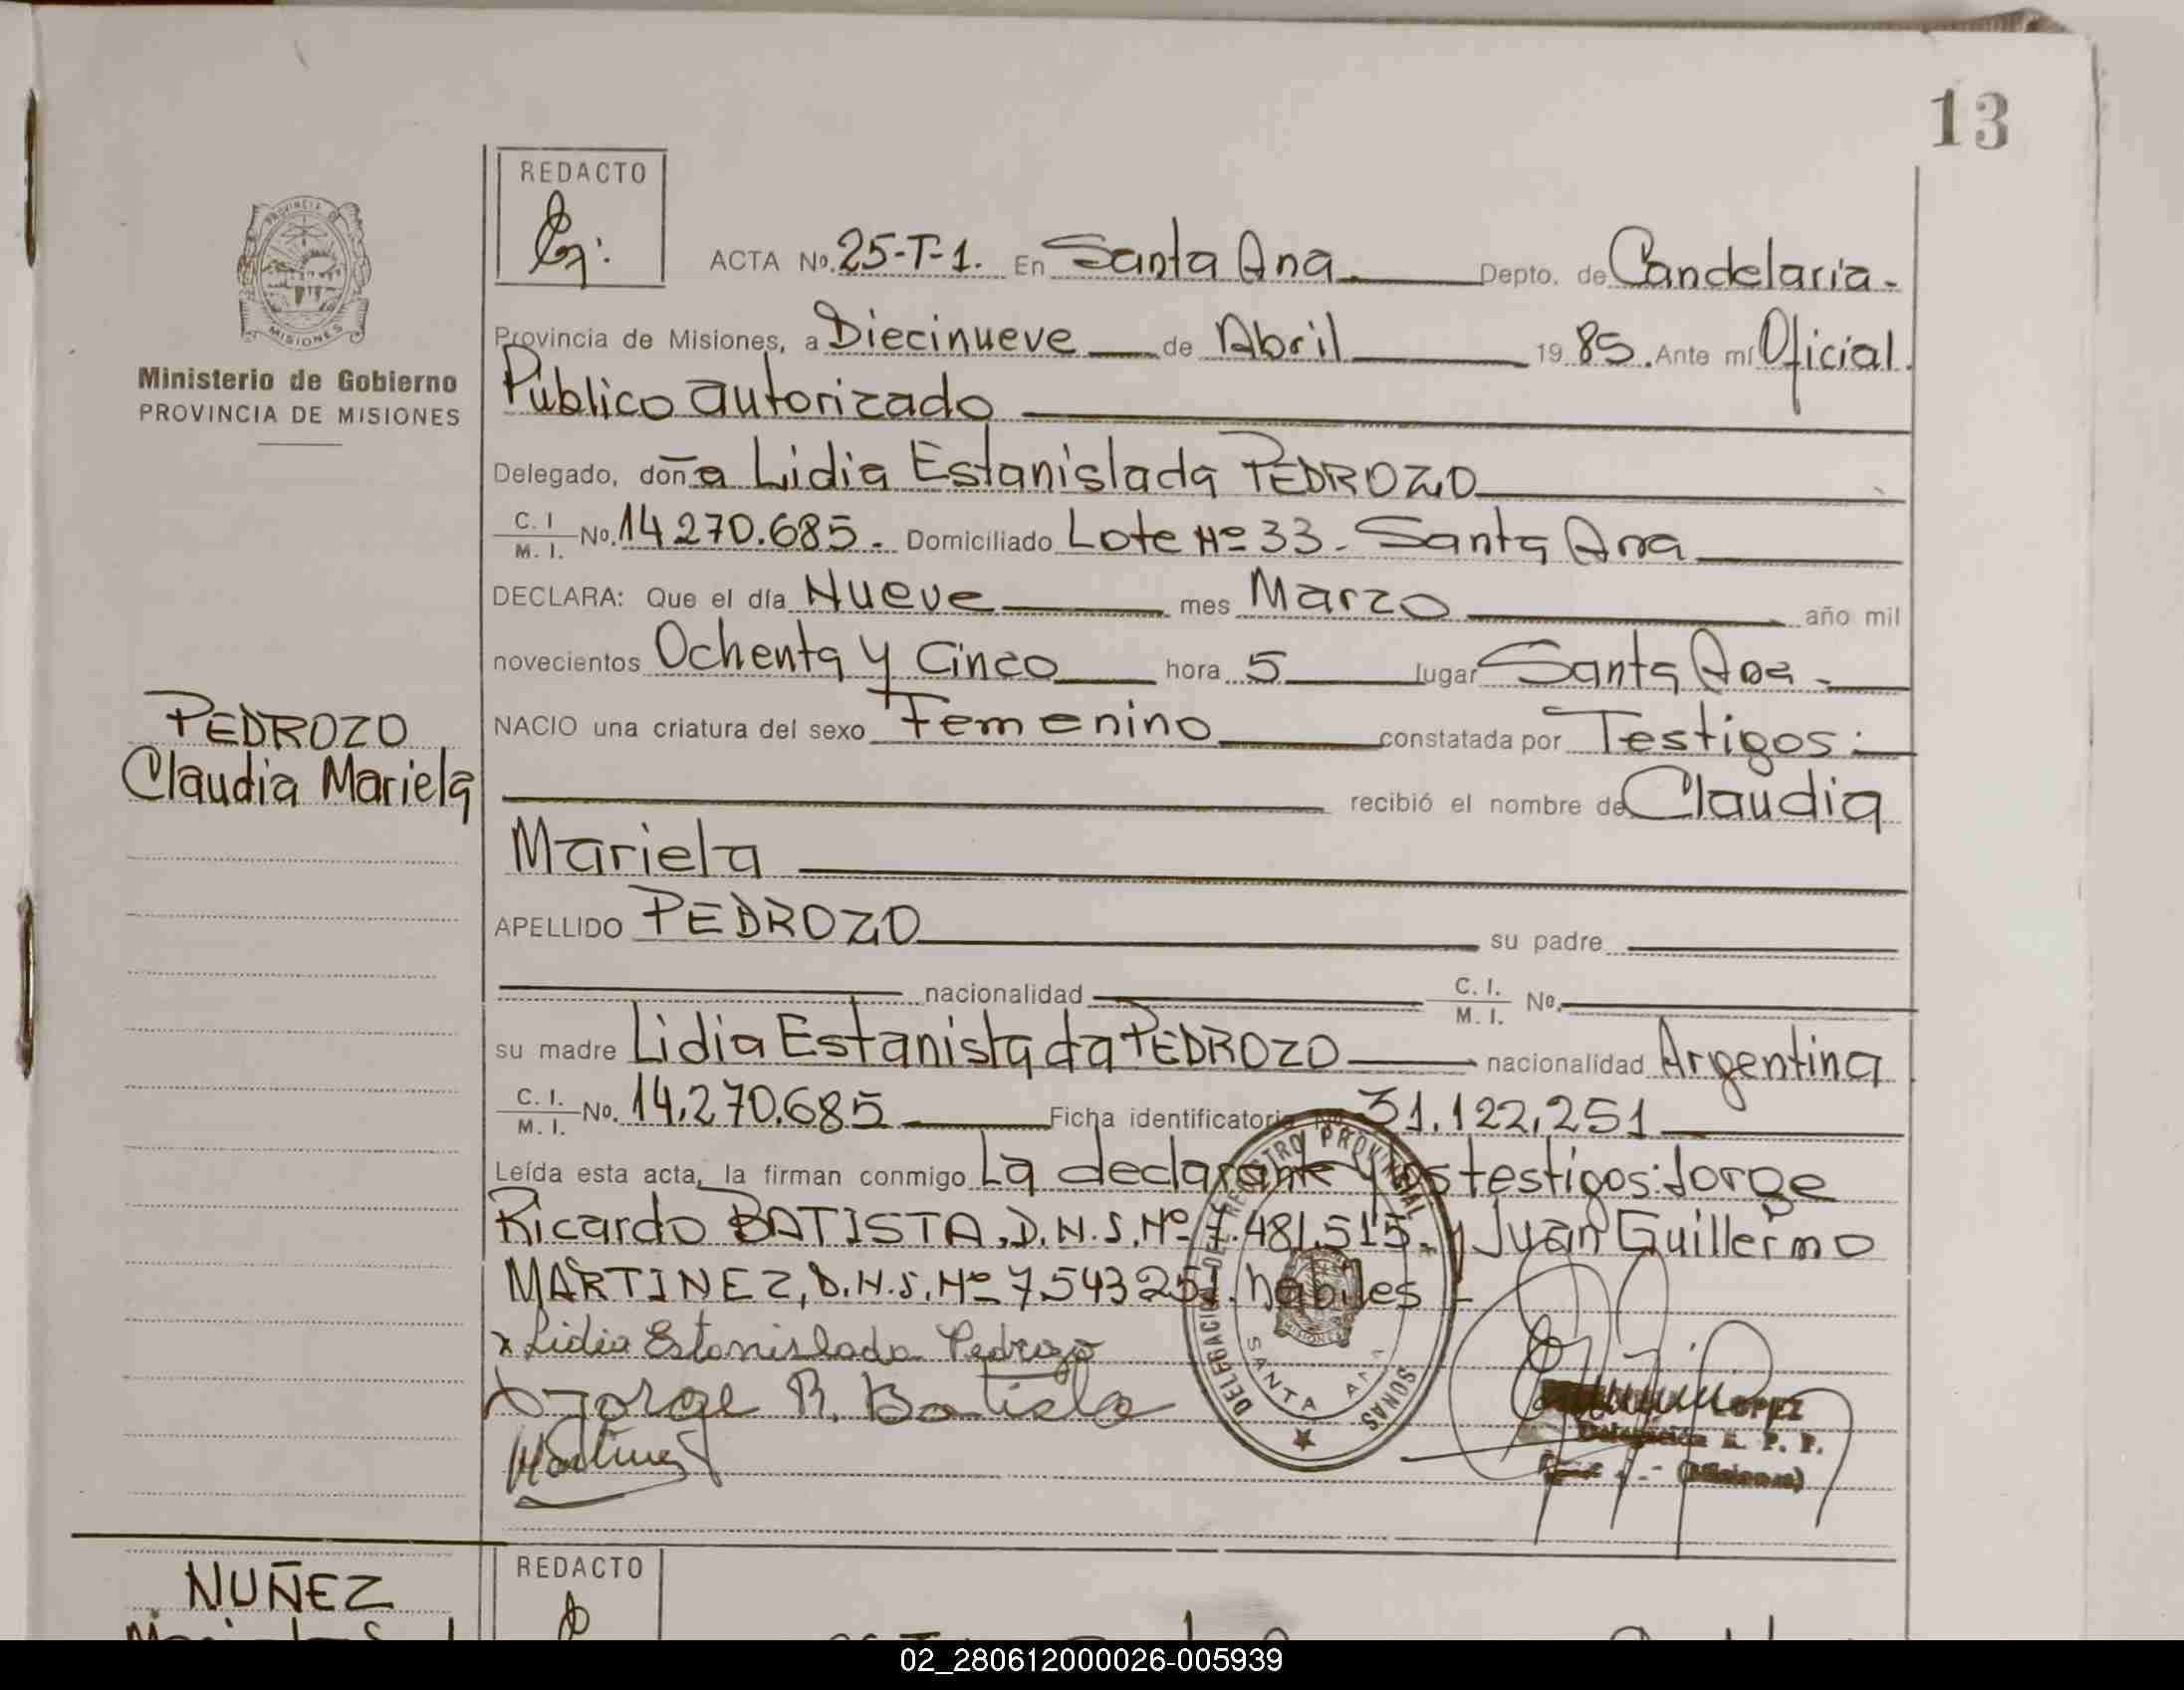 13
REDACTO
PROVINCIA DE
MISIONES
Ministerio de Gobierno
PROVINCIA DE MISIONES
ACTA No. 25-T-1. En Santa Ana Depto. de Candelaria.
Provincia de Misiones, a Diecinueve de Abril 19 85. Ante mí Oficial
Público autorizado
Delegado, doña Lidia Estanislada PEDROZO
C. I. M. I. No. 14.270.685. Domiciliado Lote Nº 33. Santa Ana
DECLARA: Que el día Nueve mes Marzo año mil
novecientos Ochenta y Cinco hora 5 lugar Santa Ana.
NACIO una criatura del sexo Femenino constatada por Testigos:
recibió el nombre de Claudia
Mariela
PEDROZO
Claudia Mariela
APELLIDO PEDROZO su padre
nacionalidad C. I. M. I. No.
su madre Lidia Estanislada PEDROZO nacionalidad Argentina
C. I. M. I. No. 14.270.685 Ficha identificatoria No. 31.122.251
Leída esta acta, la firman conmigo La declarante y los testigos: Jorge
Ricardo BATISTA, D.N.I. Nº 7.481.515. y Juan Guillermo
MARTINEZ, D.N.I. Nº 7.543.251. hábiles
x Lidia Estanislada Pedrozo
Jorge R. Batista
Martinez
DELEGACION DEL REGISTRO PROVINCIAL
SONAS
MISIONES
SANTA ANA
LOPEZ
Delegación R. P. P.
(Misiones)
NUÑEZ
REDACTO
02_280612000026-005939